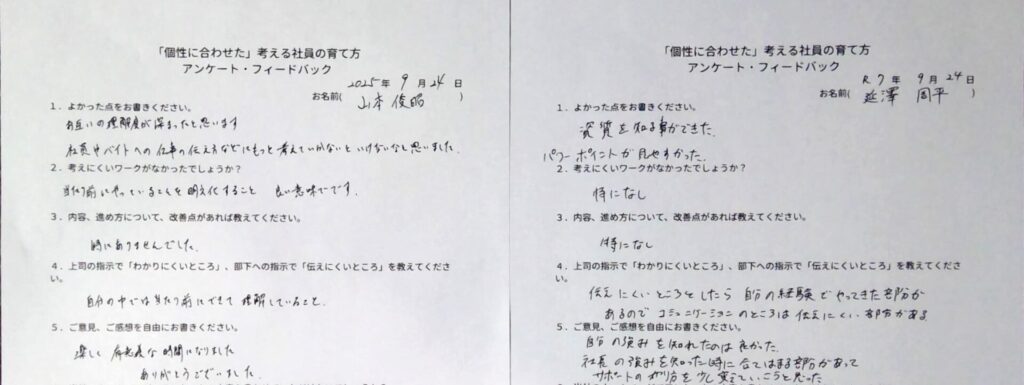 「個性に合わせた」考える社員の育て方
アンケート・フィードバック
2025年 9月 24日
お名前( 山本 俊昭 )
1．よかった点をお書きください。
お互いの理解度が深まったと思います
社員やバイトへの仕事の伝え方などにもっと考えていかないといけないなと思いました．
2．考えにくいワークがなかったでしょうか？
当り前にやっていることを明文化すること 良い意味でです．
3．内容、進め方について、改善点があれば教えてください。
特にありませんでした．
4．上司の指示で「わかりにくいところ」、部下への指示で「伝えにくいところ」を教えてくださ
い。
自分の中では当たり前にできて理解していること．
5．ご意見、ご感想を自由にお書きください。
楽しく 有意義な時間になりました
ありがとうございました．
「個性に合わせた」考える社員の育て方
アンケート・フィードバック
R 7 年 9月 24日
お名前( 延澤 周平 )
1．よかった点をお書きください。
資質を知る事ができた．
パワーポイントが見やすかった．
2．考えにくいワークがなかったでしょうか？
特になし
3．内容、進め方について、改善点があれば教えてください。
特になし
4．上司の指示で「わかりにくいところ」、部下への指示で「伝えにくいところ」を教えてくださ
い。
伝えにくいところとしたら 自分の経験でやってきた部分が
あるので コミュニケーションのところは伝えにくい部分がある
5．ご意見、ご感想を自由にお書きください。
自分の強みを知れたのは良かった．
社長の強みを知った時に合てはまる部分があって
サポートのやり方を少し変えていこうと思った